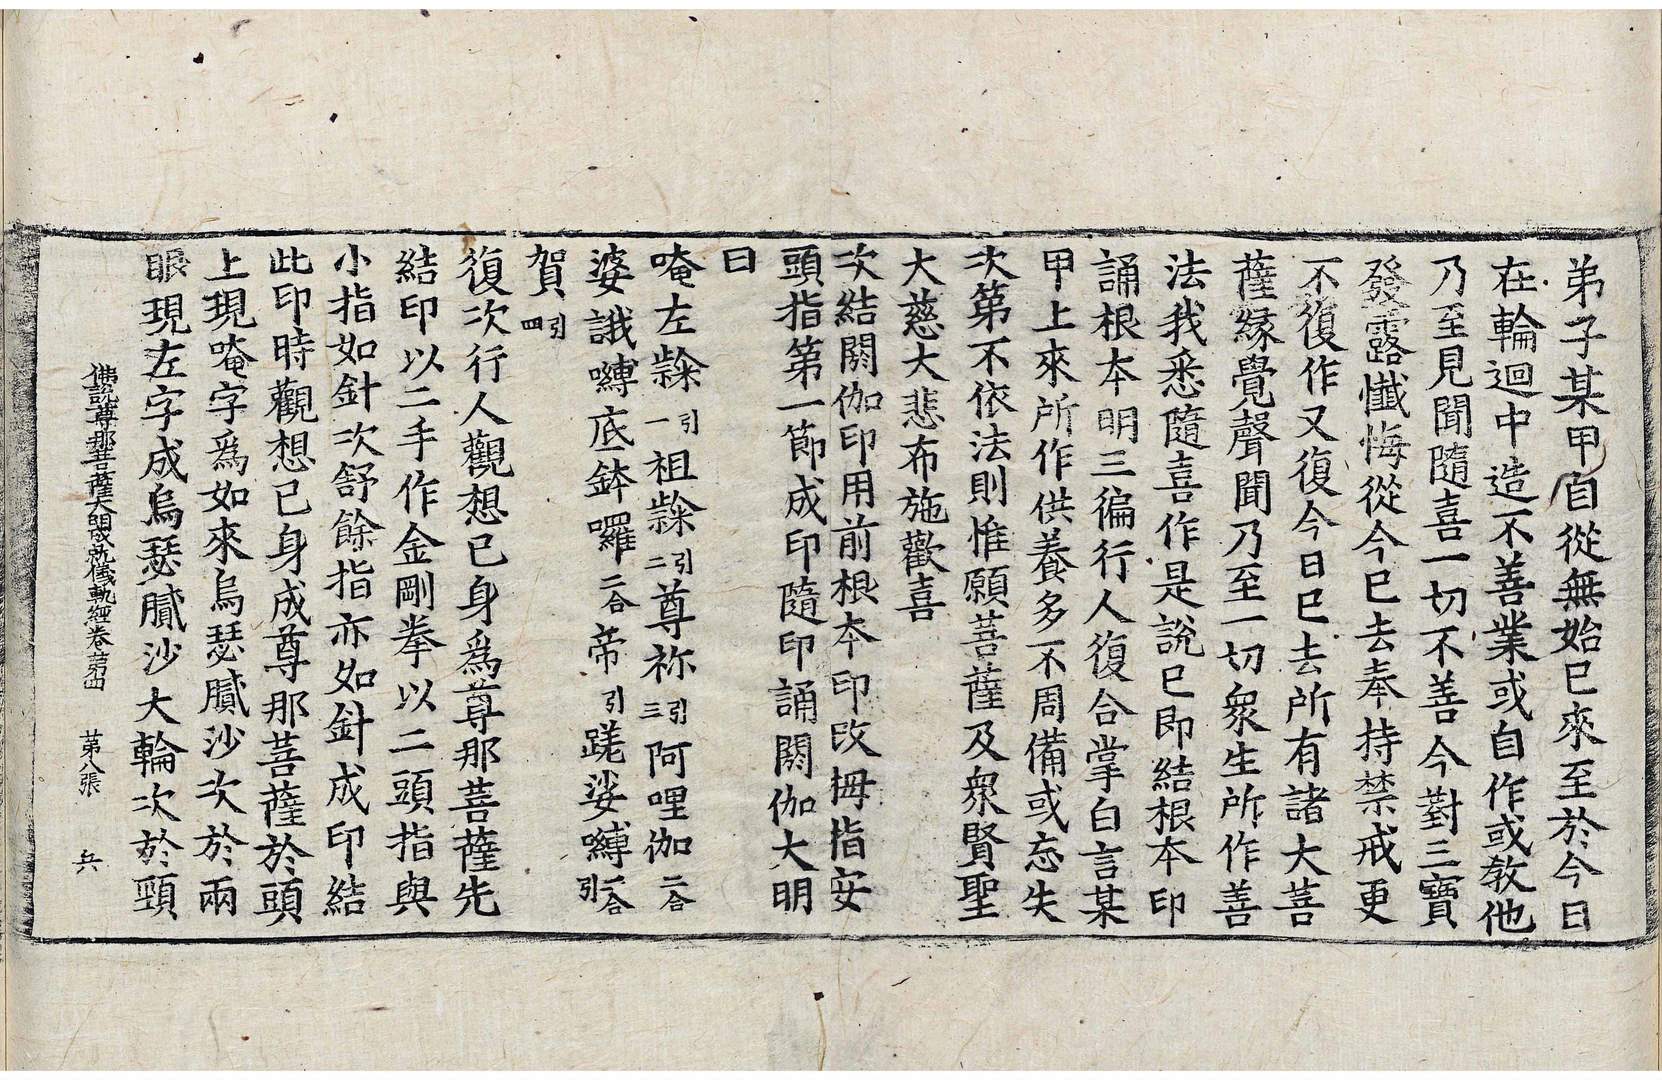 弟子某甲自從無始已來至於今日
在輪迴中造不善業或自作或教他
乃至見聞隨喜一切不善今對三寶
發露懺悔從今已去奉持禁戒更
不復作又復今日已去所有諸大菩
薩緣覺聲聞乃至一切衆生所作善
法我悉隨喜作是說已即結根本印
誦根本明三徧行人復合掌白言某
甲上來所作供養多不周備或忘失
次第不依法則惟願菩薩及衆賢聖
大慈大悲布施歡喜
次結閼伽印用前根本印改拇指安
頭指第一節成印隨印誦閼伽大明
曰
唵左㘑引一祖㘑引二尊祢引三阿哩伽二合
婆誐嚩底鉢囉二合帝引蹉娑嚩二合引
賀引四
復次行人觀想已身爲尊那菩薩先
結印以二手作金剛拳以二頭指與
小指如針次舒餘指亦如針成印結
此印時觀想已身成尊那菩薩於頭
上現唵字爲如來烏瑟膩沙次於兩
眼現左字成烏瑟膩沙大輪次於頸
佛說尊那菩薩大明成就儀軌經卷第四 第八張 兵